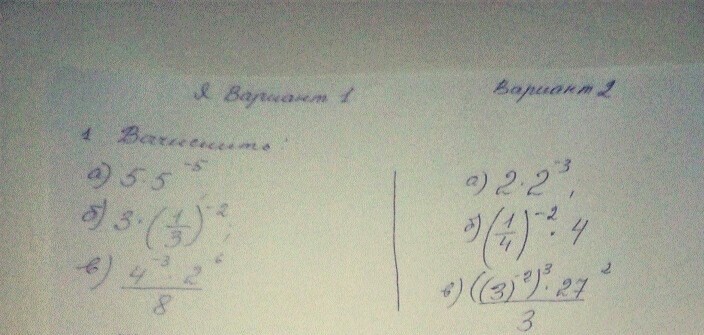 Я Вариант 1
1 Вычислить:
а) 5·5⁻⁵
б) 3·(1/3)⁻²;
в) 4⁻³·2⁶/8
Вариант 2
а) 2·2⁻³;
б) (1/4)⁻²·4
в) ((3)⁻²)³·27²/3